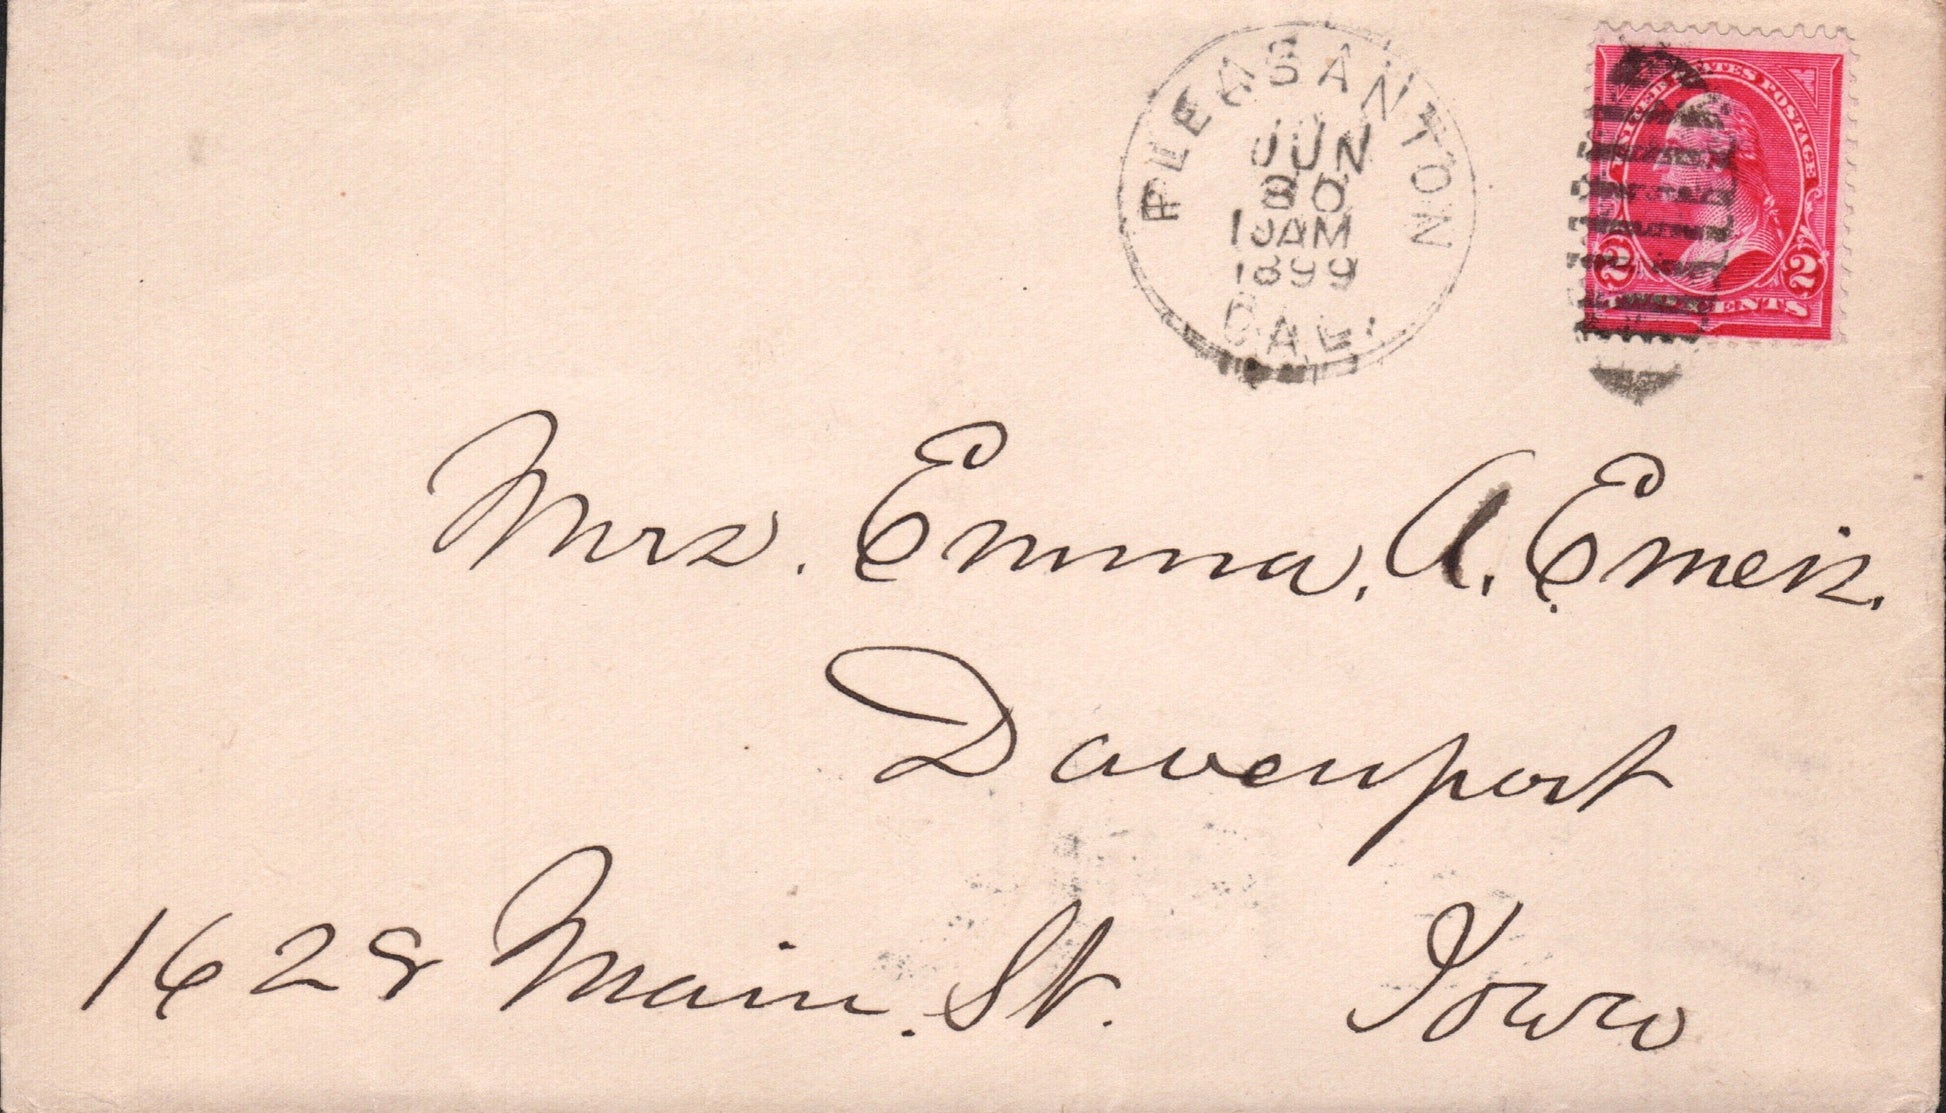 PLEASANTON
JUN
30
10AM
1899
CAL.
UNITED STATES POSTAGE
2 CENTS 2
Mrs. Emma. A. Emeis.
Davenport
1628 Main. St. Iowa